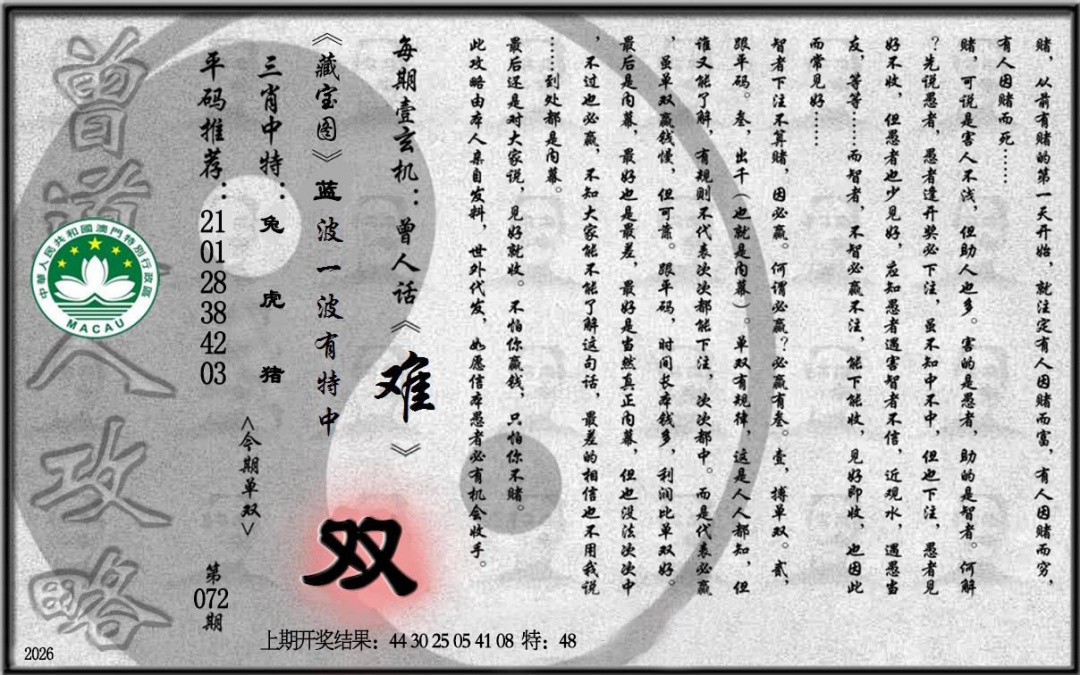 赌，从前有赌的第一天开始，就注定有人因赌而富，有人因赌而穷，
有人因赌而死……
赌，可说是害人不浅，但助人也多。害的是愚者，助的是智者。何解
？先说愚者，愚者逢开奖必下注，虽不知中不中，但也下注，愚者见
好不收，但愚者也少见好，应知愚者遇害智者不信，近观水，遇愚当
友，等等……而智者，不智必赢不注，能下能收，见好即收，也因此
而常见好……
智者下注不算赌，因必赢。何谓必赢？必赢有叁。壹，搏单双。贰，
跟平码。叁，出千（也就是内幕）。单双有规律，这是人人都知，但
谁又能了解，有规则不代表次次都能下注，次次都中。而是代表必赢
，虽单双赢钱慢，但可靠。跟平码，时间长本钱多，利润比单双好。
最后是内幕，最好也是最差，最好是当然真正内幕，但也没法次次中
，不过也必赢，不知大家能不能了解这句话，最差的相信也不用我说
……到处都是内幕。
最后还是对大家说，见好就收。不怕你赢钱，只怕你不赌。
此攻略由本人亲自发料，世外代发，如愿信本愚者必有机会收手。
每期壹玄机：曾人话《难》
《藏宝图》蓝波一波有特中
双
三肖中特：兔 虎 猪
平码推荐：21 01 28 38 42 03
<今期单双>
第072期
曾道人攻略
中華人民共和國澳門特別行政區
MACAU
上期开奖结果：44 30 25 05 41 08 特：48
2026